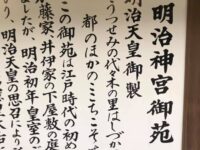 明治神宮御苑
明治天皇御製
うつせみの代々木の里はしづか
都のほかのここちこそす
この御苑は江戸時代の初め
藤家、井伊家の下屋敷の庭
ましたが、明治初年皇室の
明治天皇の思召により